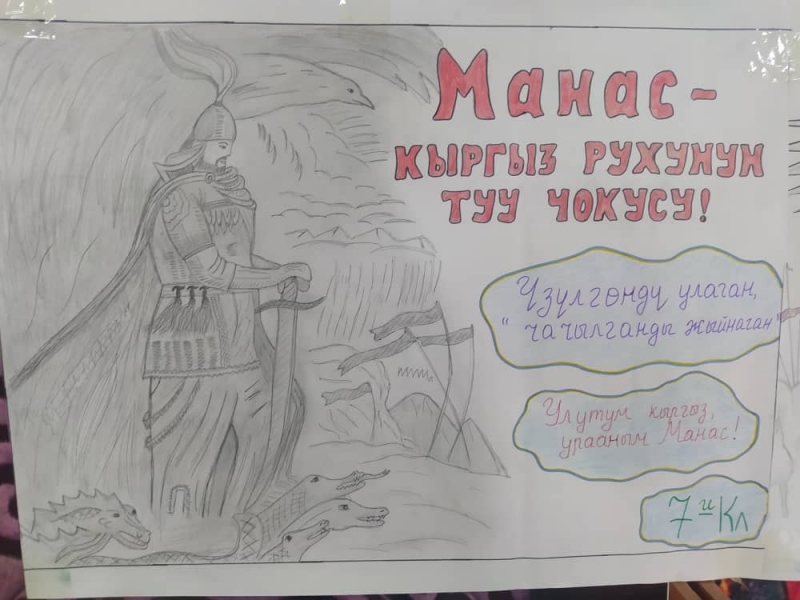 Манас-
КЫРГЫЗ РУХУНУН
ТУУ ЧОКУСУ!
Үзүлгөндү улаган,
"чачылганды жыйнаган"
Улутум кыргыз,
урааным Манас!
7"и" Кл